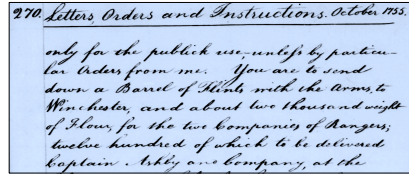 270. Letters, Orders and Instructions. October 1755.
only for the publick use, unless by particu-
lar Orders from me. You are to send
down a Barrel of Flints with the Arms, to
Winchester, and about two thousand weight
of Flour, for the two Companies of Rangers;
twelve hundred of which to be delivered
Captain Ashby and Company, at the